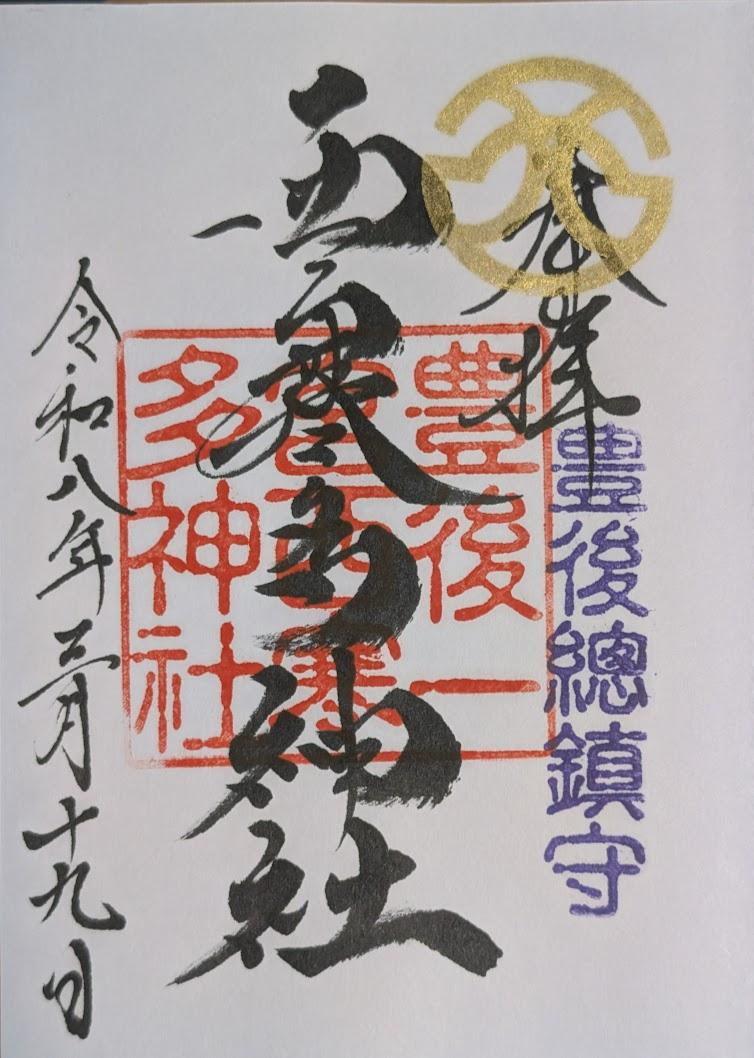 奉拝
豊後總鎮守
西寒多神社
豊後一
宮西寒
多神社
令和八年三月十九日